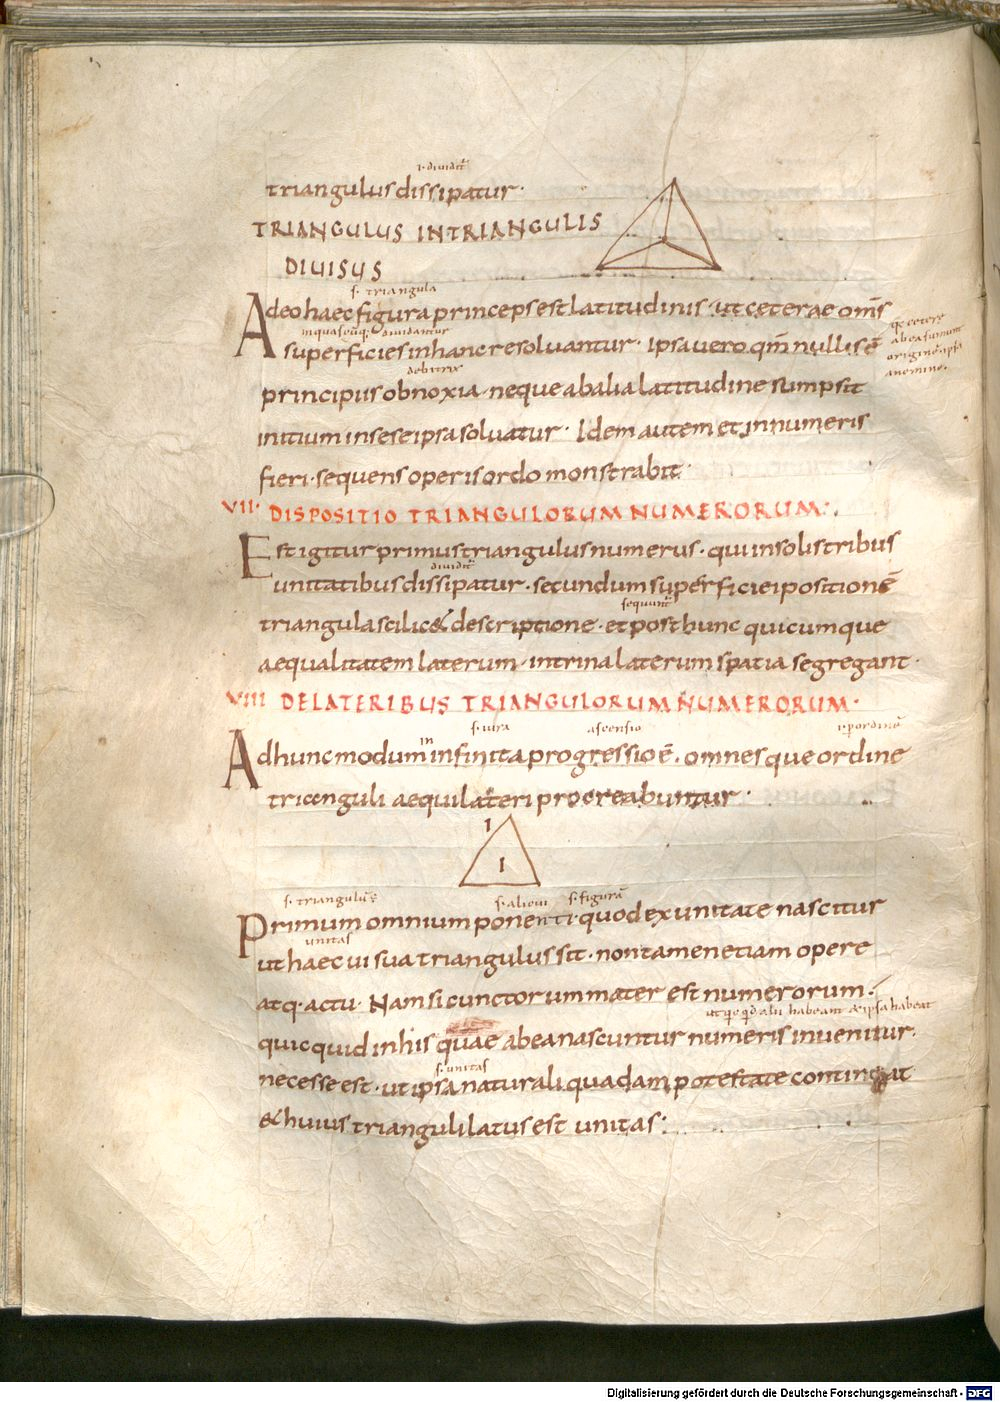 .i. diuidit̄
triangulus dissipatur·
TRIANGULUS IN TRIANGULIS
DIUISUS
s. triangula
Adeo haec figura princeps est latitudinis· ut ceterae om̄s
diuidantur
superficies in hanc resoluantur· Ipsa uero qm̄ nullis ē
debitrix
principiis obnoxia· neque ab alia latitudine sumpsit
initium in sese ipsa soluatur· Idem autem et in numeris
fieri· sequens operis ordo monstrabit·
VII· DISPOSITIO TRIANGULORUM NUMERORUM·
Est igitur primus triangulus numerus· qui in solis tribus
diuidit̄
unitatibus dissipatur· secundum superficiei positionē
sequunt̄
triangula scilic& descriptione· et post hunc quicumque
aequalitatem laterum· in trina laterum spatia segregant·
VIII DE LATERIBUS TRIANGULORUM NUMERORUM·
ascensio
Ad hunc modum in infinita progressio ē· omnesque ordine
trianguli aequilateri procreabuntur·
1
1
s. triangulus s. alicui s. figurā
Primum omnium ponenti· quod ex unitate nascitur
unitas
ut haec ui sua triangulus sit· non tamen etiam opere
atq· actu· Nam si cunctorum mater est numerorum·
habeant & ipsa habeat
quicquid in his quae ab ea nascuntur numeris inuenitur·
s. unitas
necesse est· ut ipsa naturali quadam potestate contineat
& huius trianguli latus est unitas:
Digitalisierung gefördert durch die Deutsche Forschungsgemeinschaft - DFG